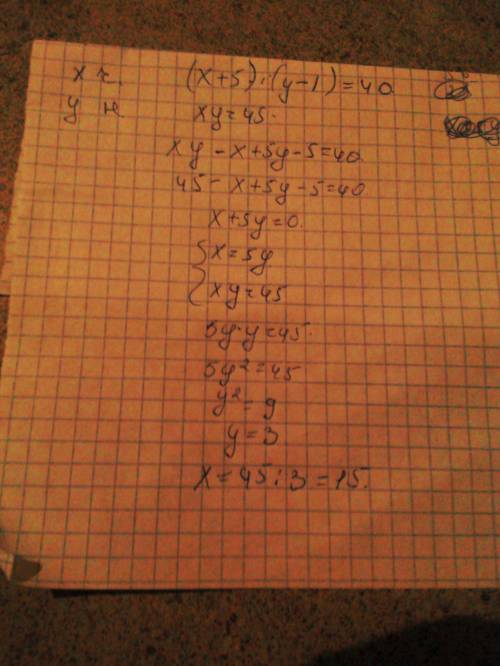 x ч. (x+5)·(y-1)=40
y н xy=45.
xy-x+5y-5=40
45-x+5y-5=40
x+5y=0.
{x=5y
{xy=45
5y·y=45.
5y²=45
y²=9
y=3
x=45:3=15.